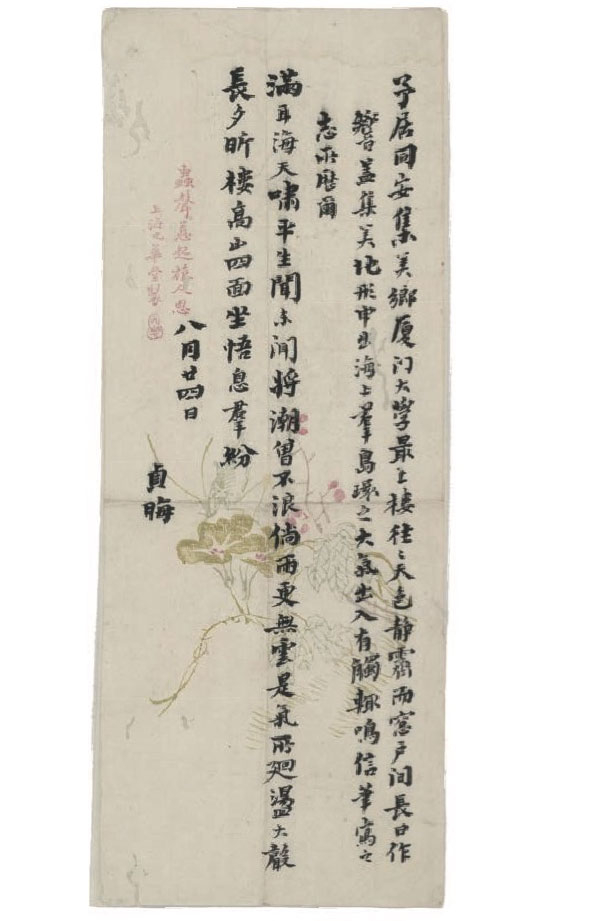 予居同安集美鄉厦门大學最上樓往〻天色靜霽而窓戶间長日作
響蓋集美地形申出海上羣島環之大氣出入有觸輒鳴信筆寫之
志所歷爾
滿耳海天嘯平生聞未聞將潮曾不浪倘雨更無雲是氣所廻盪大聲
長夕昕樓高山四面坐悟息羣紛
八月廿四日
貞晦
蟲聲急起思
上海九華堂製